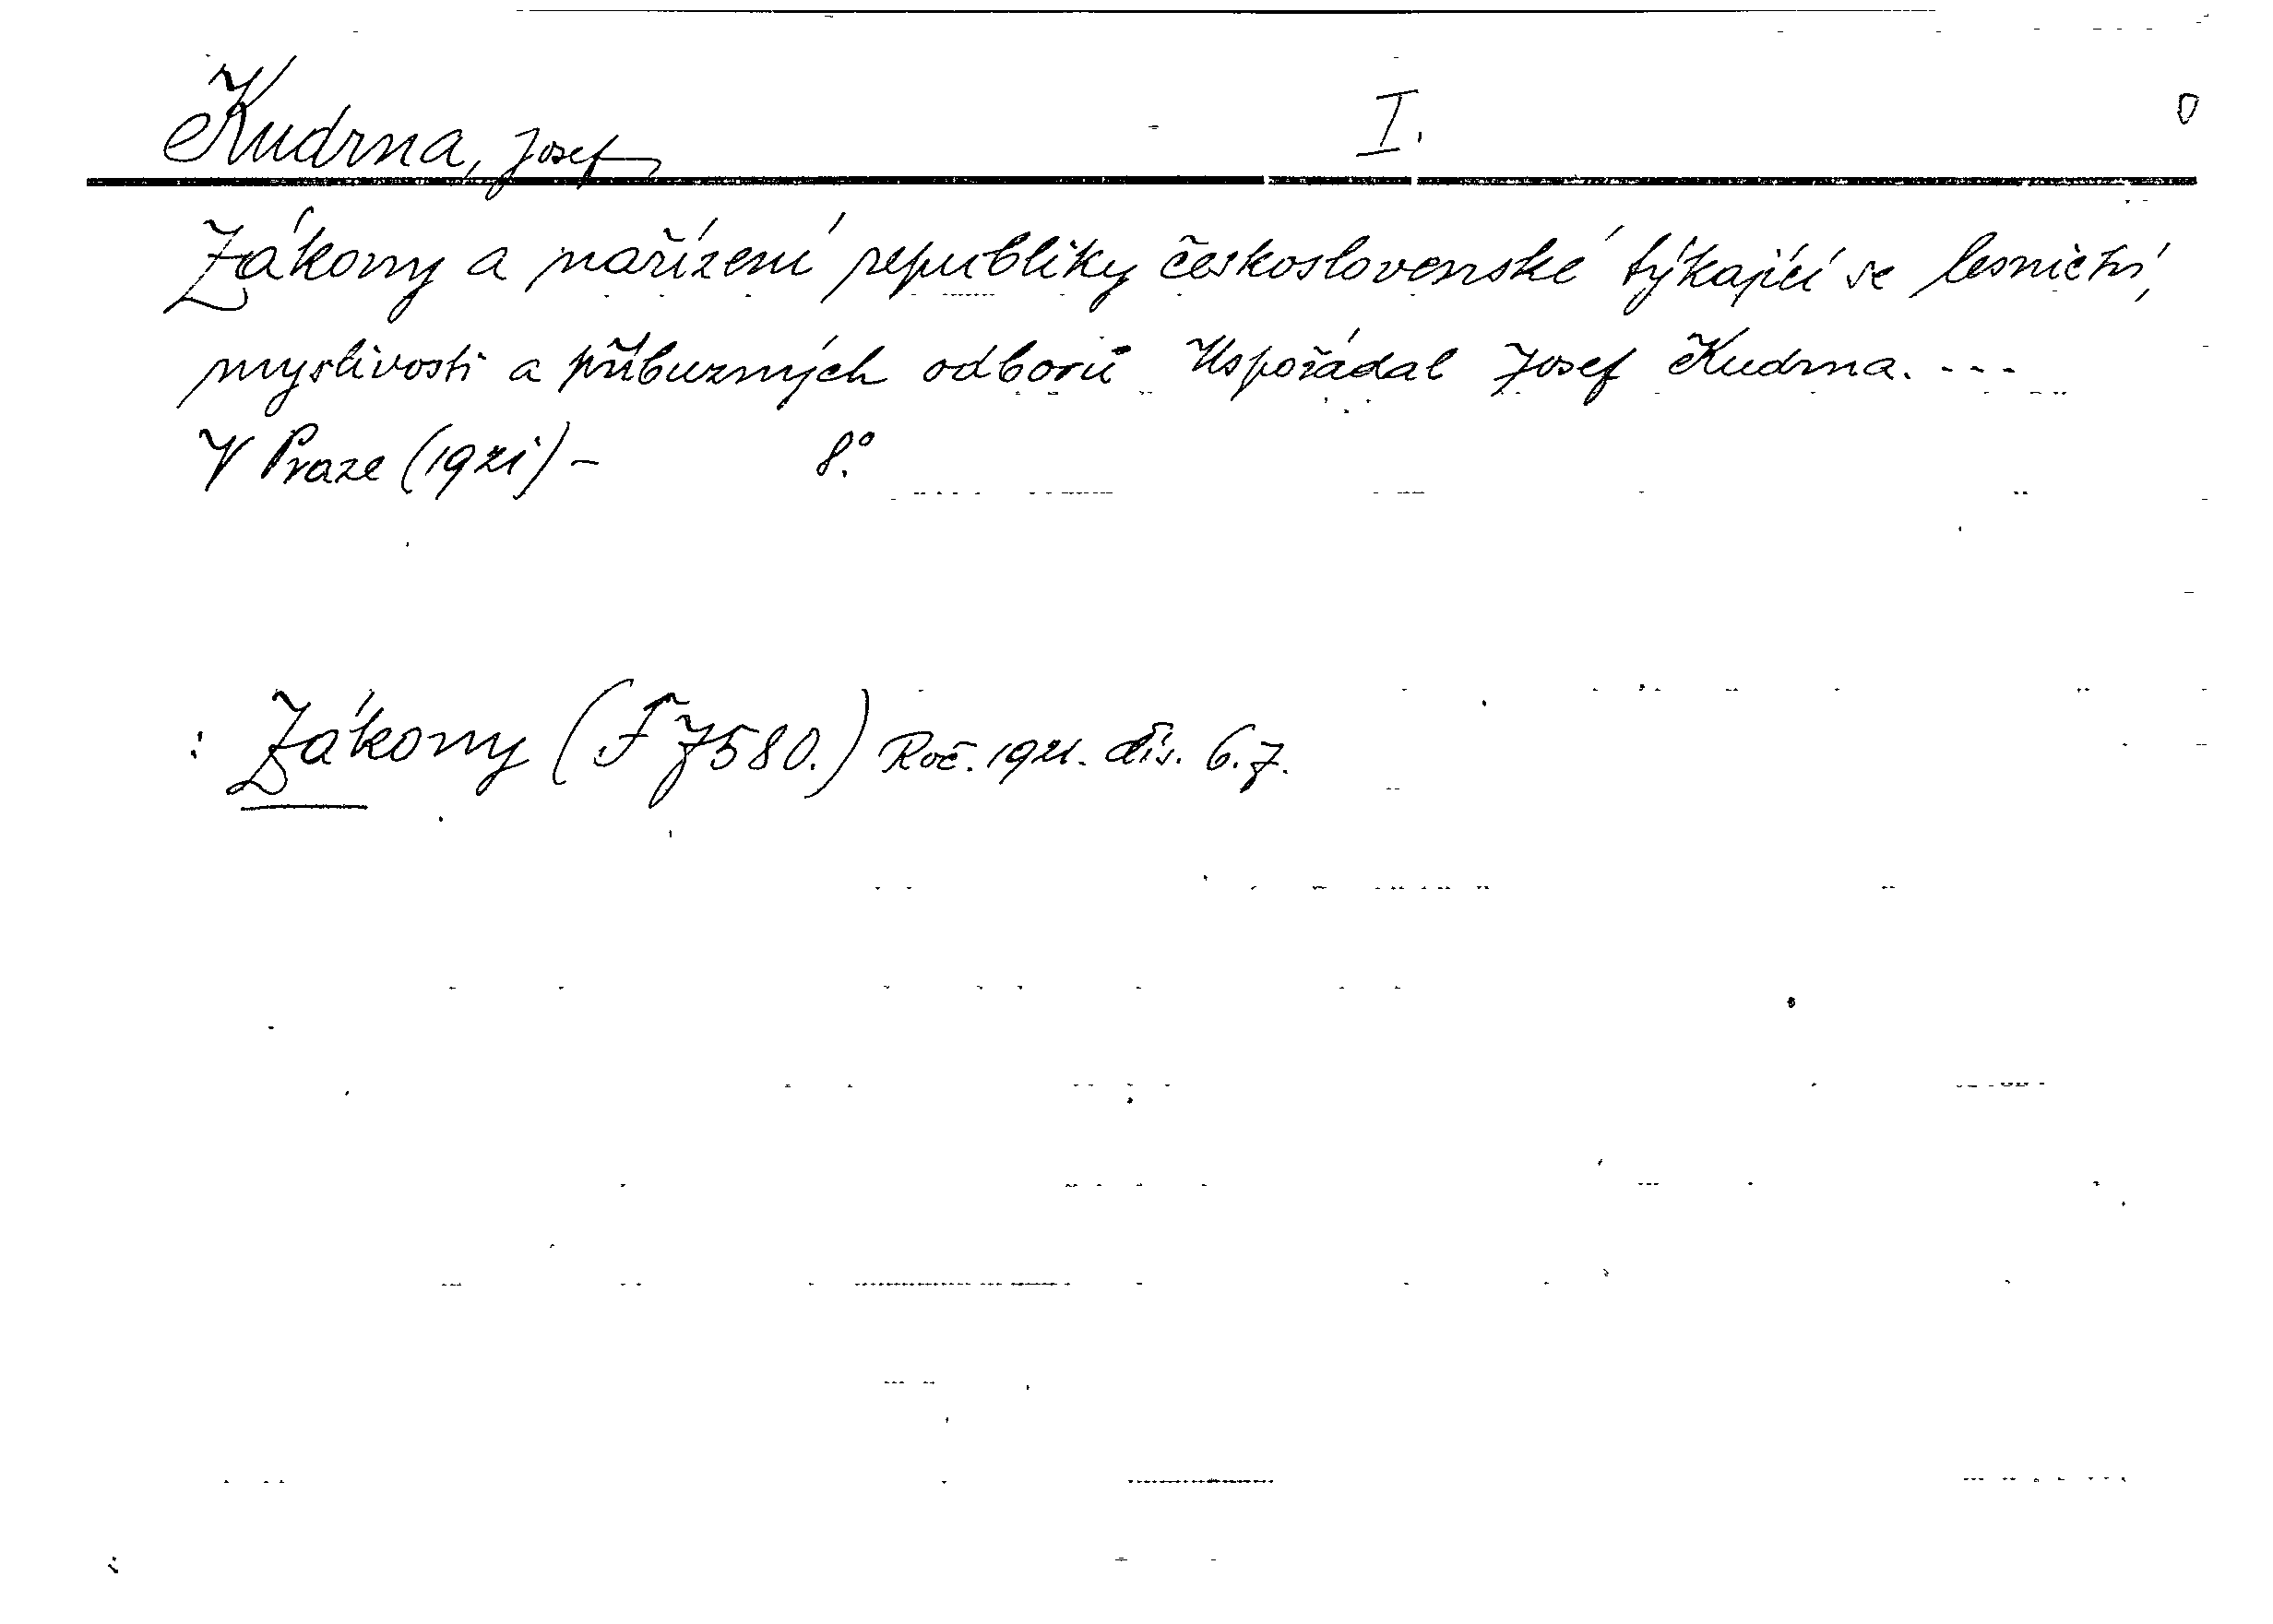 Kudrna, Josef I.
Zákony a nařízení republiky československé týkající se lesnictví,
myslivosti a příbuzných odborů Uspořádal Josef Kudrna. ---
V Praze (1921) - 8°.
: Zákony (F 7580.) Roč. 1921. čís. 6.7.